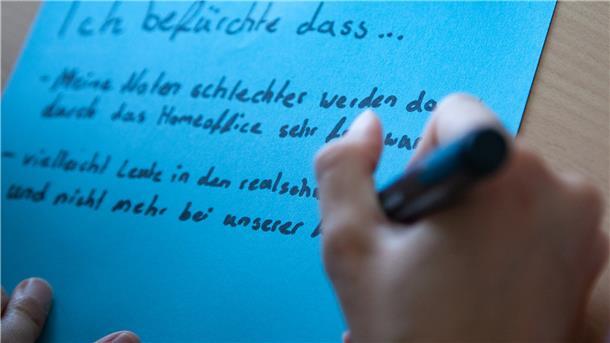 Ich befürchte dass...
- Meine Noten schlechter werden da
durch das Homeoffice sehr
- vielleicht Leute in den
und nicht mehr bei unserer